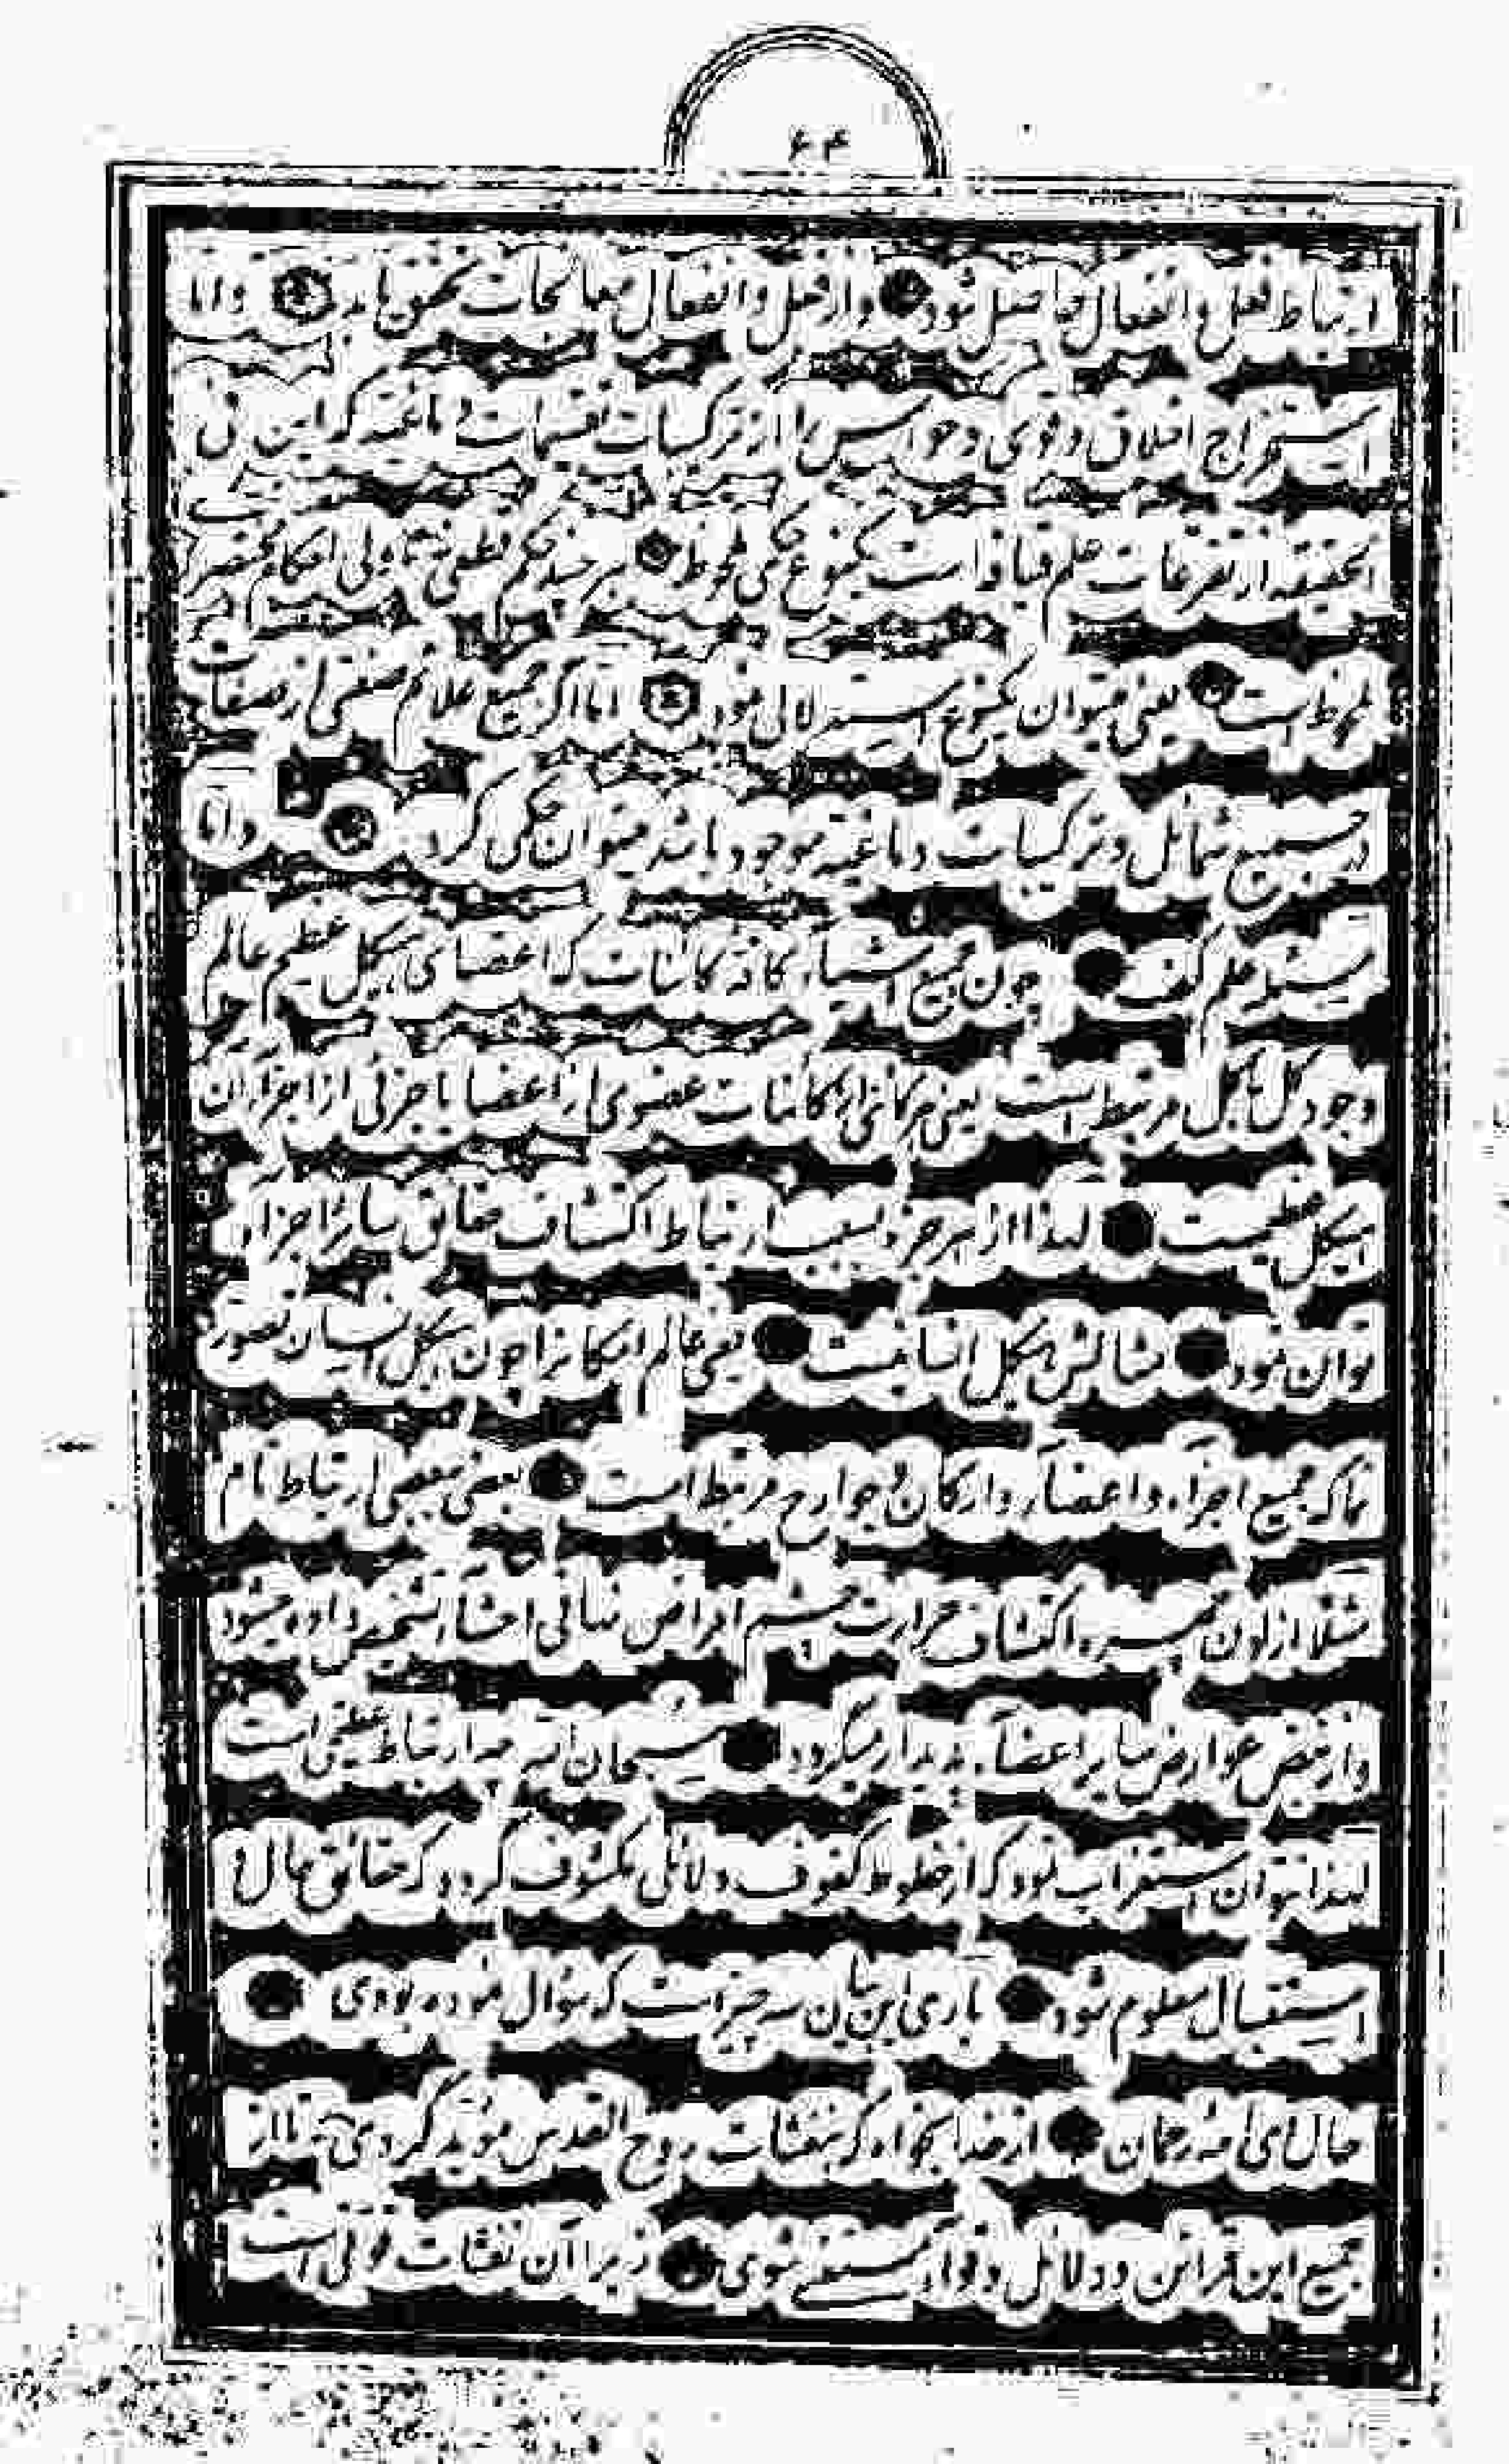 ۶۴
ارتباط فعل و انفعال حاصل شود و از فعل و انفعال معالجات تحقق یابد و اما
استخراج اخلاق و قوی و حواس را از ترکیبات تقسیمات دماغیه که این فی
الحقیقه از تفرعات علم قیافه است بمجموع حکمی ملحوظ هر چند حکم قطعی نه ولی احکام مختصر
ملحوظ است یعنی میتوان بمجموع استدلال نمود اما اگر جمیع علائم صفتی از صفات
در جمیع شمائل و ترکیبات دماغیه موجود باشد میتوان حکمی کرد و اما
مسئله علم کف چون جمیع اشیاء کافه کائنات که اعضای هیکل عظیم عالم
وجود کل بکل مرتبط است یعنی هر کائنی از کائنات عضوی از اعضا یا جزئی از اجزاء آن
هیکل عظیمست لهذا از هر جزء بسبب ارتباط اکتشاف حقایق سائر اجزاء
توان نمود مثالش هیکل انسانیست یعنی عالم امکانرا چون هیکل انسان تصور
نما که جمیع اجزاء و اعضاء و ارکان و جوارح مرتبط است بعضی ببعضی ارتباط تام
مثلا از لون چهره و اکتشاف حرارت چشم امراض نهانی احشاء تشخیص داده میشود
و از نبض عوارض سایر اعضاء پدیدار میگردد سبحان الله چه ارتباط عظیمی است
لهذا نتوان استغراب نمود که از خطوط کفوف دلائلی مکشوف گردد که حقائق حال و
استقبال معلوم شود باری این بیان سه چیز است که سؤال نموده بودی
حال ای امة رحمان از خدا بخواه که بنفثات روح القدس مؤید گردی تا از
جمیع این قرائن و دلائل و قواعد مستغنی شوی زیرا آن نفثات قوتی است